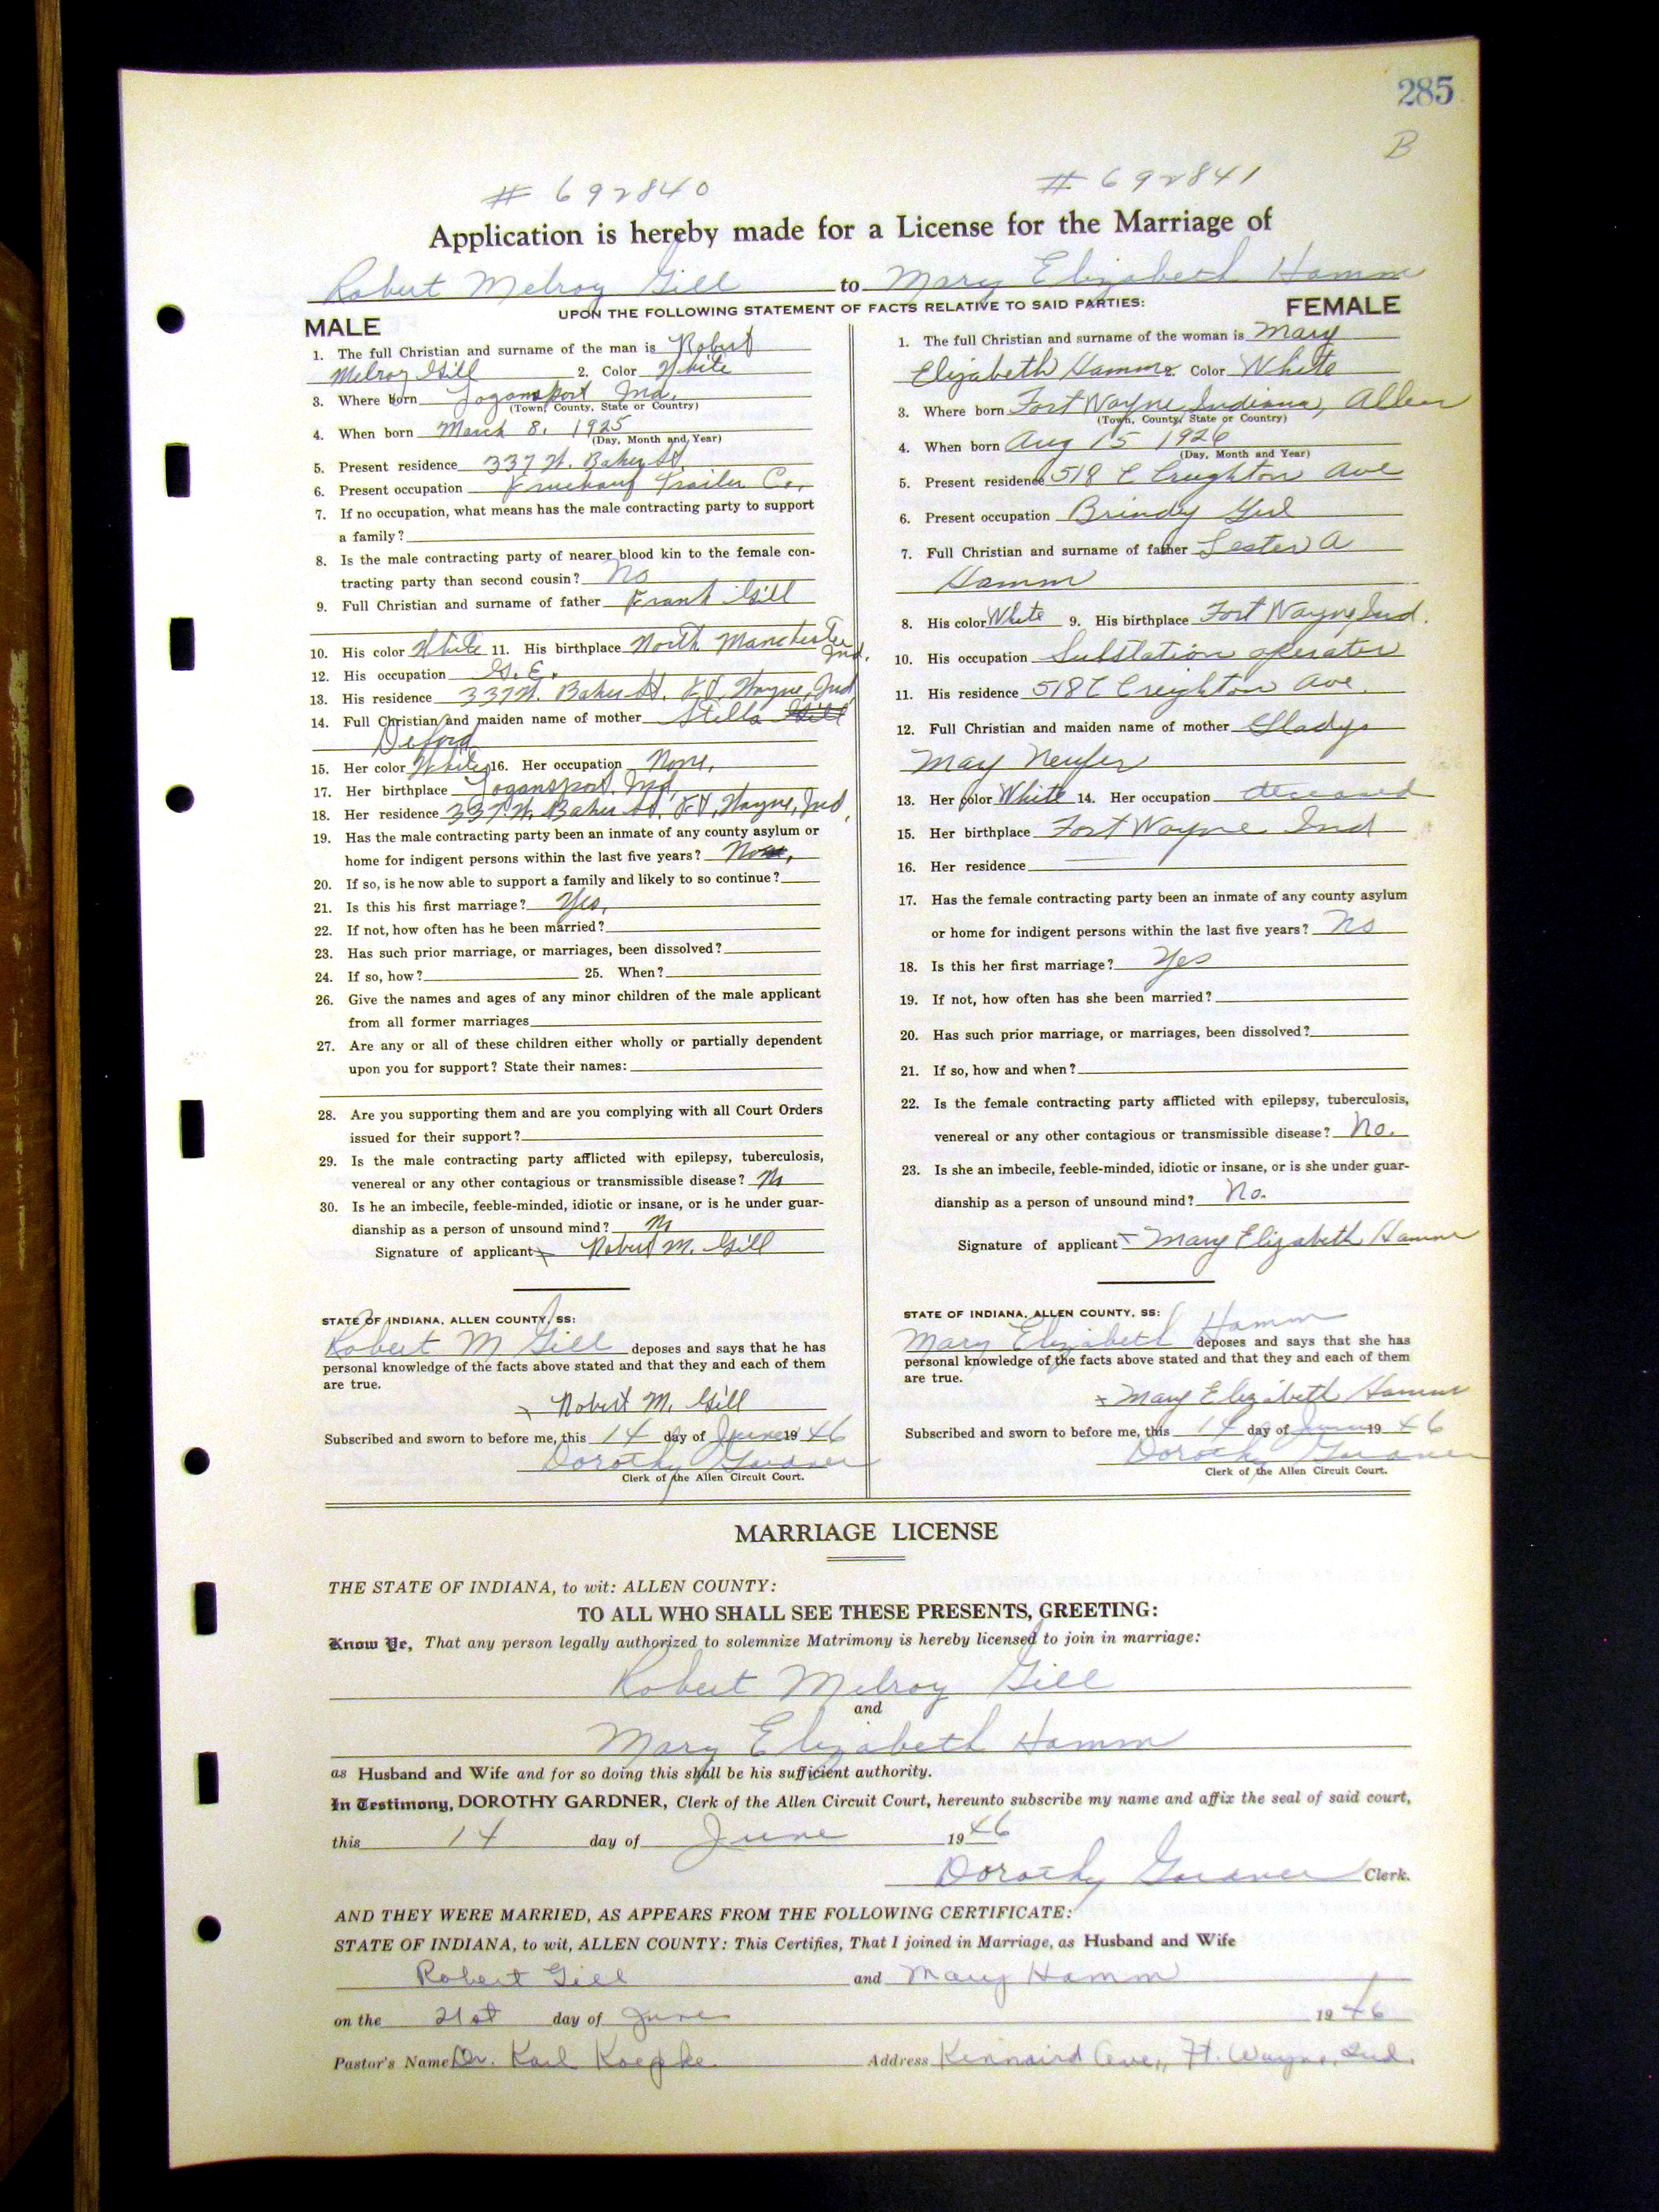 285
B
# 692840 # 692841
Application is hereby made for a License for the Marriage of
Robert Melroy Gill to Mary Elizabeth Hamm
UPON THE FOLLOWING STATEMENT OF FACTS RELATIVE TO SAID PARTIES:
MALE
1. The full Christian and surname of the man is Robert
Melroy Gill 2. Color White
3. Where born Logansport Ind.
(Town, County, State or Country)
4. When born March 8, 1925
(Day, Month and Year)
5. Present residence 337 W. Baker St.
6. Present occupation Fruehauf Trailer Co.
7. If no occupation, what means has the male contracting party to support
a family?
8. Is the male contracting party of nearer blood kin to the female con-
tracting party than second cousin? No
9. Full Christian and surname of father Frank Gill
10. His color White 11. His birthplace North Manchester Ind.
12. His occupation G. E.
13. His residence 337 W. Baker St. Ft. Wayne, Ind
14. Full Christian and maiden name of mother Stella Gill
Deford
15. Her color White 16. Her occupation None,
17. Her birthplace Logansport, Ind,
18. Her residence 337 W. Baker St. Ft. Wayne, Ind,
19. Has the male contracting party been an inmate of any county asylum or
home for indigent persons within the last five years? No
20. If so, is he now able to support a family and likely to so continue?
21. Is this his first marriage? Yes,
22. If not, how often has he been married?
23. Has such prior marriage, or marriages, been dissolved?
24. If so, how? 25. When?
26. Give the names and ages of any minor children of the male applicant
from all former marriages
27. Are any or all of these children either wholly or partially dependent
upon you for support? State their names:
28. Are you supporting them and are you complying with all Court Orders
issued for their support?
29. Is the male contracting party afflicted with epilepsy, tuberculosis,
venereal or any other contagious or transmissible disease? No
30. Is he an imbecile, feeble-minded, idiotic or insane, or is he under guar-
dianship as a person of unsound mind? No
Signature of applicant x Robert M. Gill
STATE OF INDIANA, ALLEN COUNTY, SS:
Robert M Gill deposes and says that he has
personal knowledge of the facts above stated and that they and each of them
are true.
x Robert M. Gill
Subscribed and sworn to before me, this 14 day of June 19 46
Dorothy Gardner
Clerk of the Allen Circuit Court.
FEMALE
1. The full Christian and surname of the woman is Mary
Elizabeth Hamm 2. Color White
3. Where born Fort Wayne Indiana, Allen
(Town, County, State or Country)
4. When born Aug 15 1926
(Day, Month and Year)
5. Present residence 518 E Creighton Ave
6. Present occupation Girl
7. Full Christian and surname of father Lester A
Hamm
8. His color White 9. His birthplace Fort Wayne, Ind.
10. His occupation Substation operator
11. His residence 518 E Creighton Ave.
12. Full Christian and maiden name of mother Gladys
May Neufer
13. Her color White 14. Her occupation deceased
15. Her birthplace Fort Wayne Ind
16. Her residence
17. Has the female contracting party been an inmate of any county asylum
or home for indigent persons within the last five years? No
18. Is this her first marriage? Yes
19. If not, how often has she been married?
20. Has such prior marriage, or marriages, been dissolved?
21. If so, how and when?
22. Is the female contracting party afflicted with epilepsy, tuberculosis,
venereal or any other contagious or transmissible disease? No.
23. Is she an imbecile, feeble-minded, idiotic or insane, or is she under guar-
dianship as a person of unsound mind? No.
Signature of applicant x Mary Elizabeth Hamm
STATE OF INDIANA, ALLEN COUNTY, SS:
Mary Elizabeth Hamm deposes and says that she has
personal knowledge of the facts above stated and that they and each of them
are true.
x Mary Elizabeth Hamm
Subscribed and sworn to before me, this 14 day of June 19 46
Dorothy Gardner
Clerk of the Allen Circuit Court.
MARRIAGE LICENSE
THE STATE OF INDIANA, to wit: ALLEN COUNTY:
TO ALL WHO SHALL SEE THESE PRESENTS, GREETING:
Know Ye, That any person legally authorized to solemnize Matrimony is hereby licensed to join in marriage:
Robert Melroy Gill
and
Mary Elizabeth Hamm
as Husband and Wife and for so doing this shall be his sufficient authority.
In Testimony, DOROTHY GARDNER, Clerk of the Allen Circuit Court, hereunto subscribe my name and affix the seal of said court,
this 14 day of June 19 46
Dorothy Gardner Clerk.
AND THEY WERE MARRIED, AS APPEARS FROM THE FOLLOWING CERTIFICATE:
STATE OF INDIANA, to wit, ALLEN COUNTY: This Certifies, That I joined in Marriage, as Husband and Wife
Robert Gill and Mary Hamm
on the 21st day of June 19 46
Pastor's Name Dr. Karl Koepke Address Kinnaird Ave., Ft. Wayne, Ind.